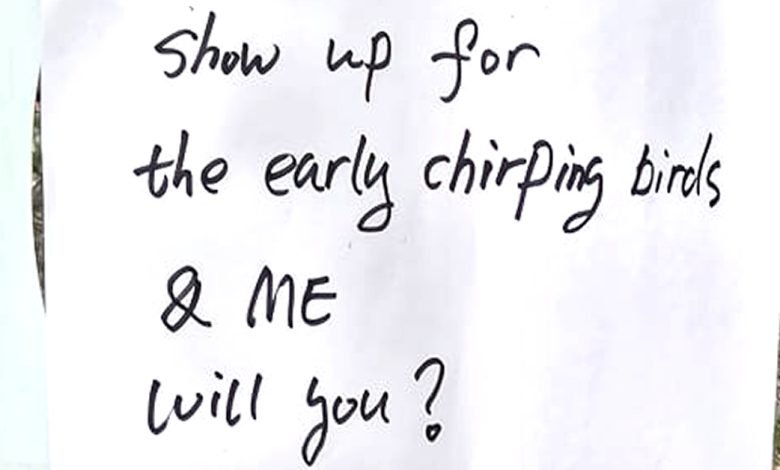 show up for
the early chirping birds
& ME
will you?